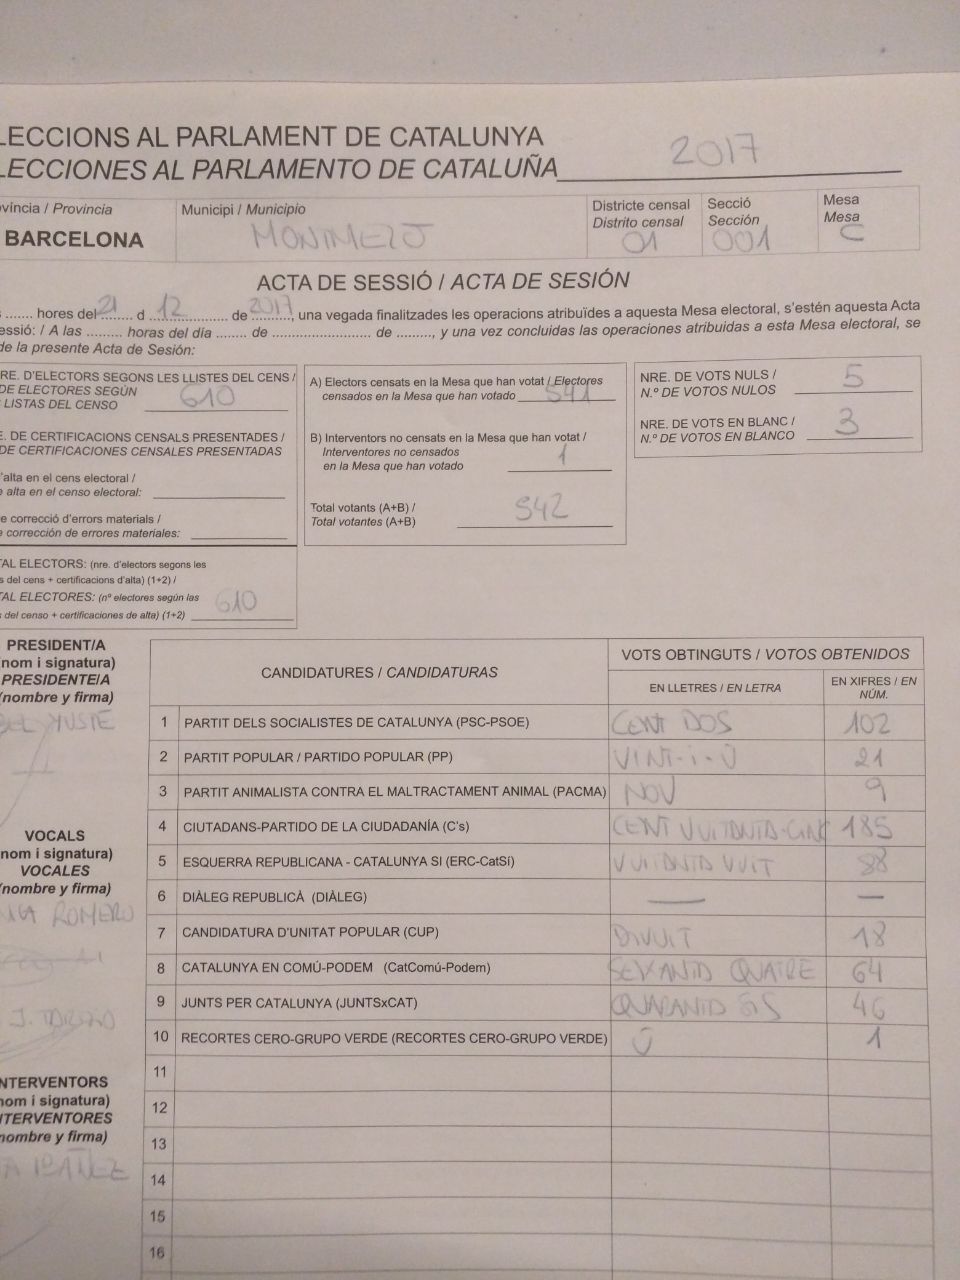 LECCIONS AL PARLAMENT DE CATALUNYA
LECCIONES AL PARLAMENTO DE CATALUÑA 2017
víncia / Provincia
BARCELONA
Municipi / Municipio
MONTMELÓ
Districte censal
Distrito censal
01
Secció
Sección
001
Mesa
Mesa
C
ACTA DE SESSIÓ / ACTA DE SESIÓN
....... hores del 21 d 12 de 2017, una vegada finalitzades les operacions atribuïdes a aquesta Mesa electoral, s'estén aquesta Acta
essió: / A las ......... horas del día ........ de ......................... de ........., y una vez concluidas las operaciones atribuidas a esta Mesa electoral, se
de la presente Acta de Sesión:
RE. D'ELECTORS SEGONS LES LLISTES DEL CENS /
DE ELECTORES SEGÚN
LISTAS DEL CENSO 610
E. DE CERTIFICACIONS CENSALS PRESENTADES /
DE CERTIFICACIONES CENSALES PRESENTADAS
'alta en el cens electoral /
e alta en el censo electoral:
e correcció d'errors materials /
e corrección de errores materiales:
TAL ELECTORS: (nre. d'electors segons les
s del cens + certificacions d'alta) (1+2) /
TAL ELECTORES: (nº electores según las
s del censo + certificaciones de alta) (1+2) 610
A) Electors censats en la Mesa que han votat / Electores
censados en la Mesa que han votado 541
B) Interventors no censats en la Mesa que han votat /
Interventores no censados
en la Mesa que han votado 1
Total votants (A+B) /
Total votantes (A+B) 542
NRE. DE VOTS NULS /
N.º DE VOTOS NULOS 5
NRE. DE VOTS EN BLANC /
N.º DE VOTOS EN BLANCO 3
PRESIDENT/A
(nom i signatura)
PRESIDENTE/A
(nombre y firma)
VOCALS
(nom i signatura)
VOCALES
(nombre y firma)
ROMERO
J.
NTERVENTORS
nom i signatura)
TERVENTORES
nombre y firma)
IBAÑEZ
CANDIDATURES / CANDIDATURAS
VOTS OBTINGUTS / VOTOS OBTENIDOS
EN LLETRES / EN LETRA
EN XIFRES / EN
NÚM.
1 PARTIT DELS SOCIALISTES DE CATALUNYA (PSC-PSOE) CENT DOS 102
2 PARTIT POPULAR / PARTIDO POPULAR (PP) VINT-I-Ú 21
3 PARTIT ANIMALISTA CONTRA EL MALTRACTAMENT ANIMAL (PACMA) NOU 9
4 CIUTADANS-PARTIDO DE LA CIUDADANÍA (C's) CENT VUITANTA-CINC 185
5 ESQUERRA REPUBLICANA - CATALUNYA SI (ERC-CatSí) VUITANTA VUIT 88
6 DIÀLEG REPUBLICÀ (DIÀLEG) — —
7 CANDIDATURA D'UNITAT POPULAR (CUP) DIVUIT 18
8 CATALUNYA EN COMÚ-PODEM (CatComú-Podem) SEXANTA QUATRE 64
9 JUNTS PER CATALUNYA (JUNTSxCAT) QUARANTA SIS 46
10 RECORTES CERO-GRUPO VERDE (RECORTES CERO-GRUPO VERDE) Ú 1
11
12
13
14
15
16